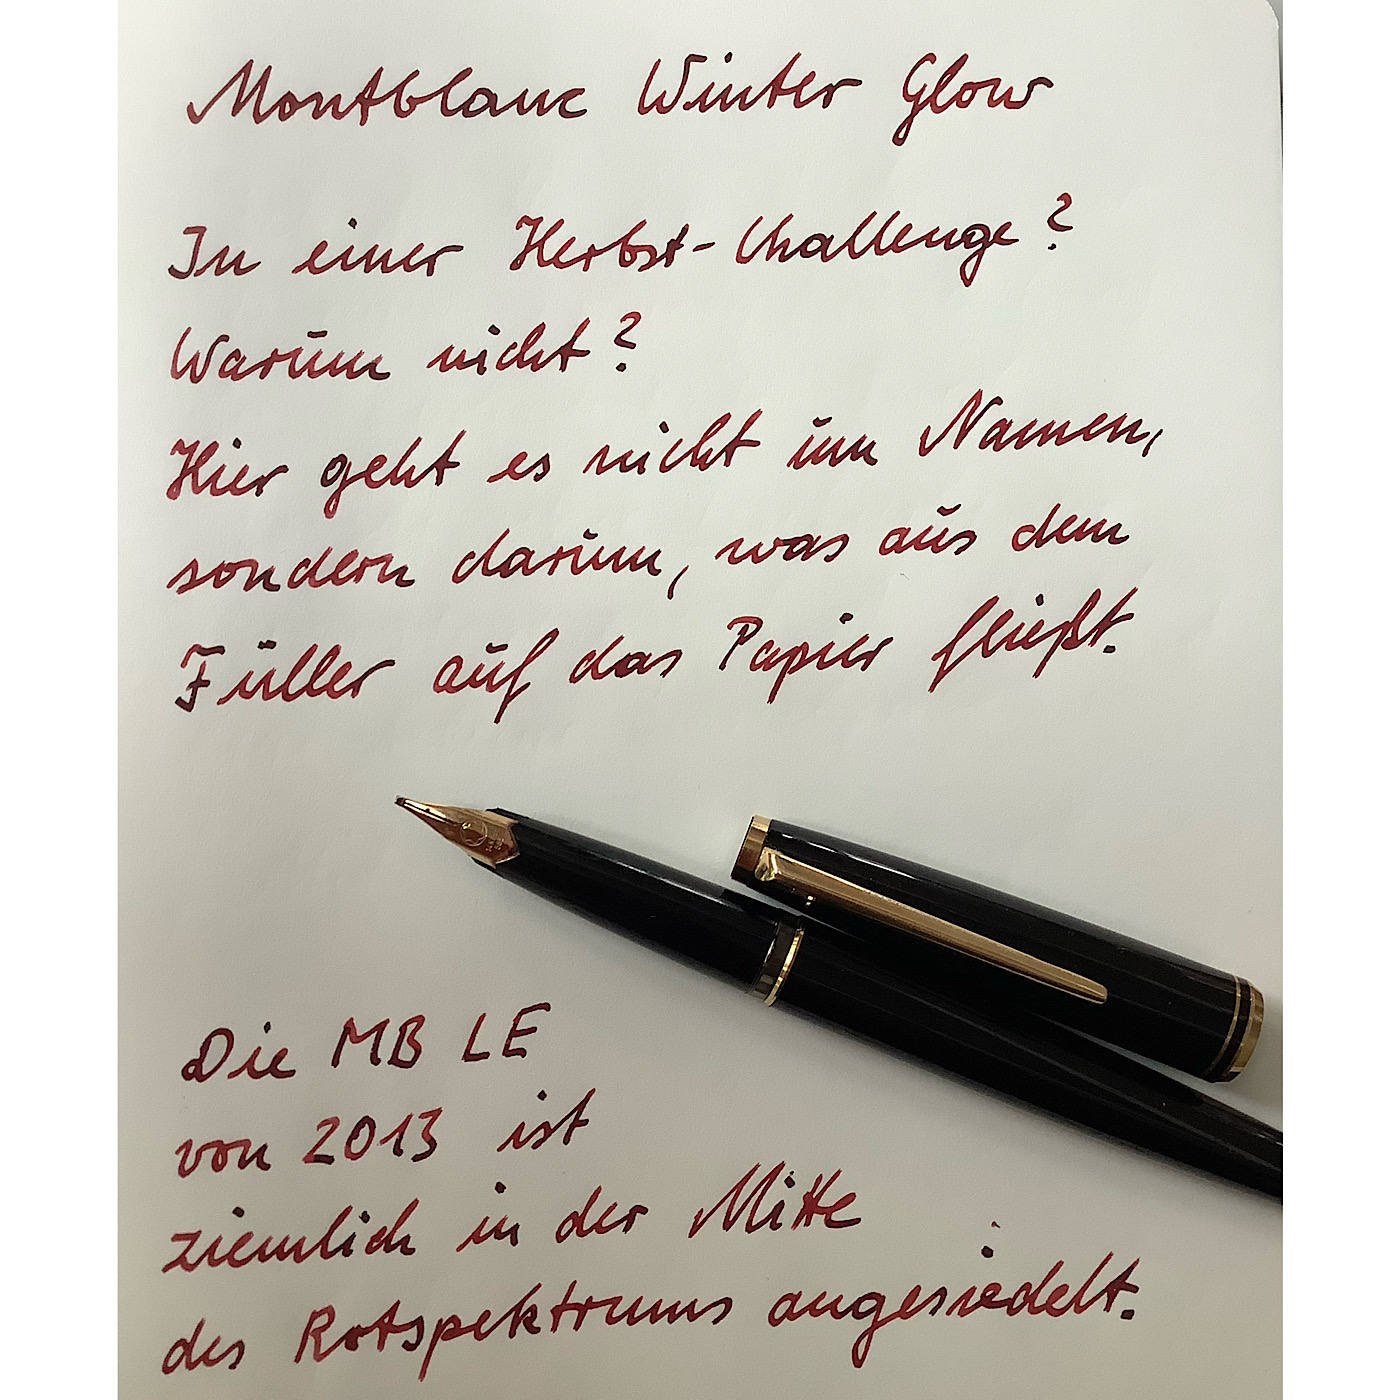 Montblanc Winter Glow
In einer Herbst-Challenge?
Warum nicht?
Hier geht es nicht um Namen,
sondern darum, was aus dem
Füller auf das Papier fließt.
Die MB LE
von 2013 ist
ziemlich in der Mitte
des Rotspektrums angesiedelt.